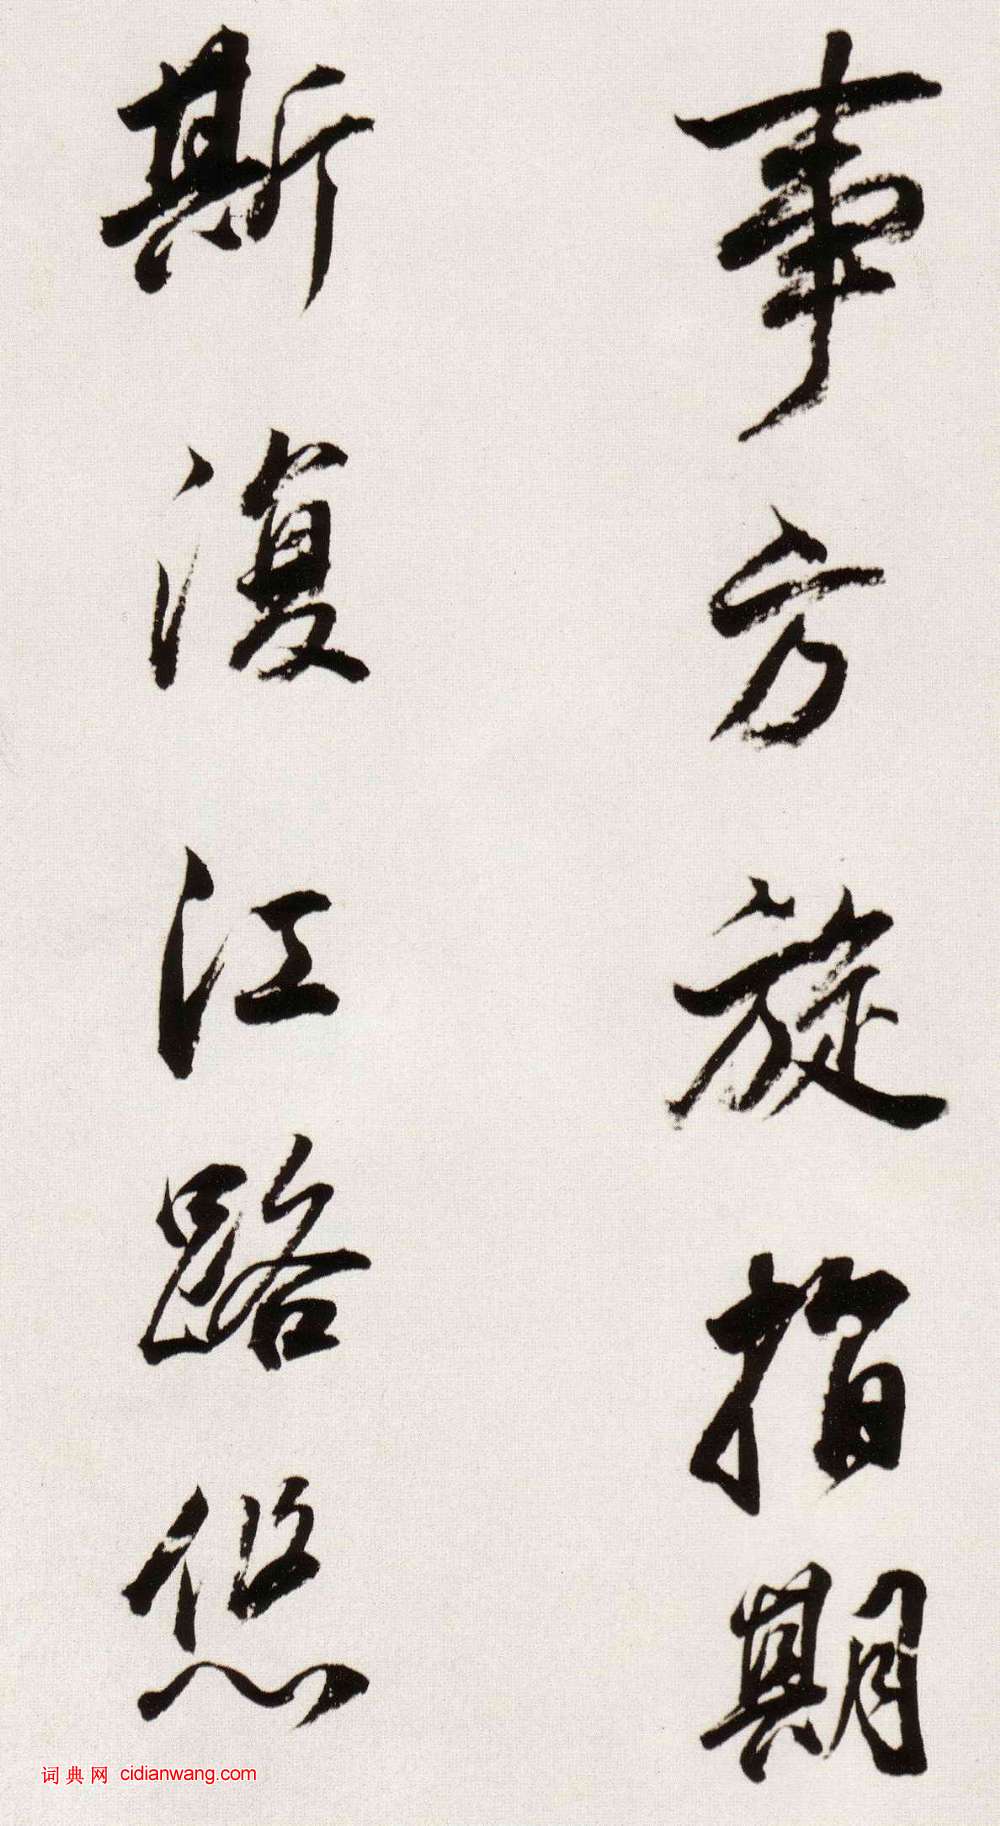 事方旋指期
斯復江路悠
词典网 cidianwang.com